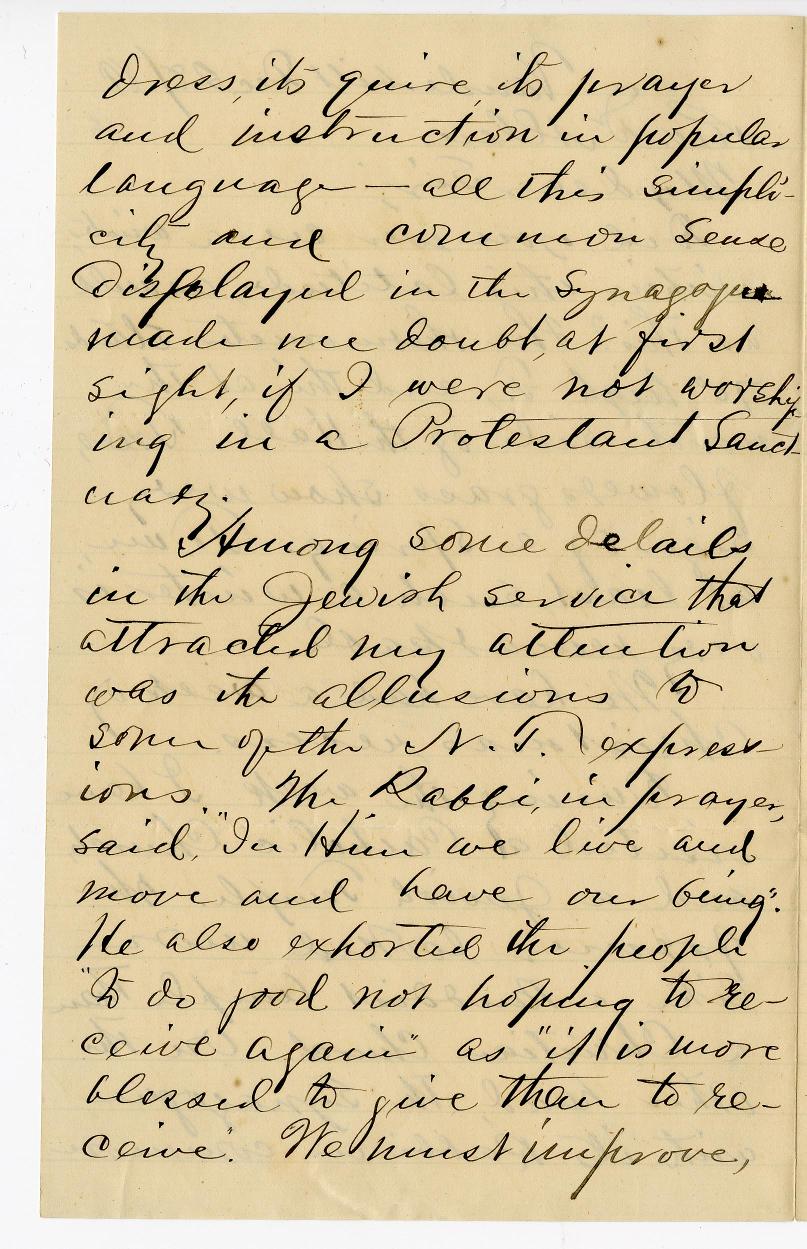 dress, its quire, its prayer
and instruction in popular
language — all this simpli-
city and common sense
displayed in the Synagogue
made me doubt, at first
sight, if I were not worship-
ing in a Protestant Sanct-
uary.
Among some details
in the Jewish service that
attracted my attention
was the allusions to
some of the N. T. express-
ions. The Rabbi, in prayer,
said, "In Him we live and
move and have our being".
He also exhorted the people
"to do good not hoping to re-
ceive again" as "it is more
blessed to give than to re-
ceive". We must improve,